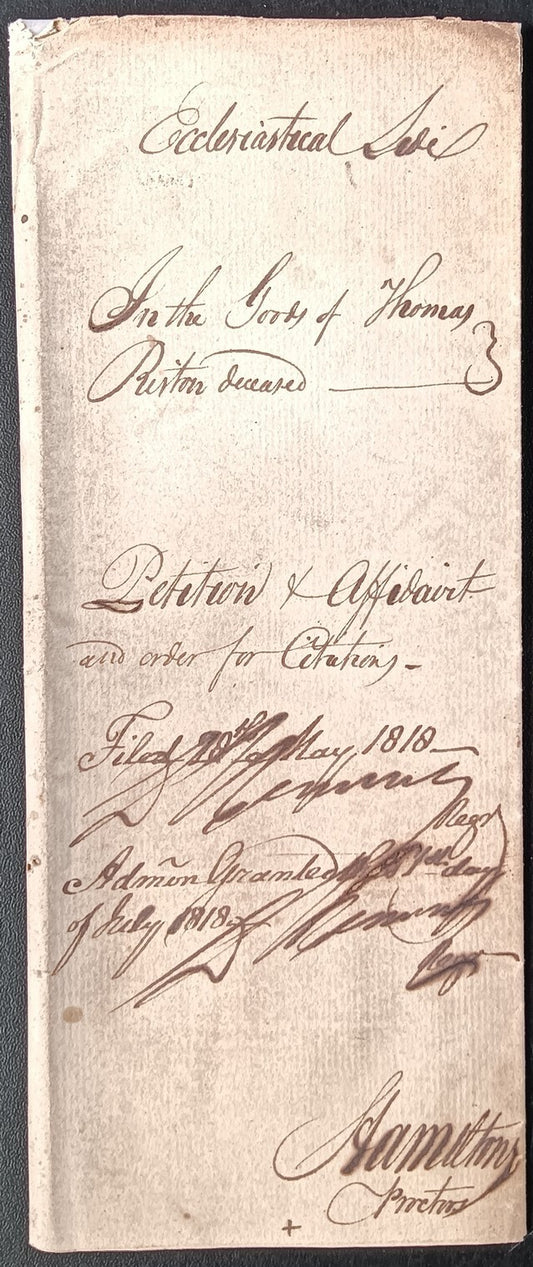 Ecclesiastical Side
In the Goods of Thomas
Riston deceased
Petition & Affidavit
and order for Citations -
Filed 28th May 1818
Regr
Admōn Granted 1st day
of July 1818
Regr
Hamilton
Proctor